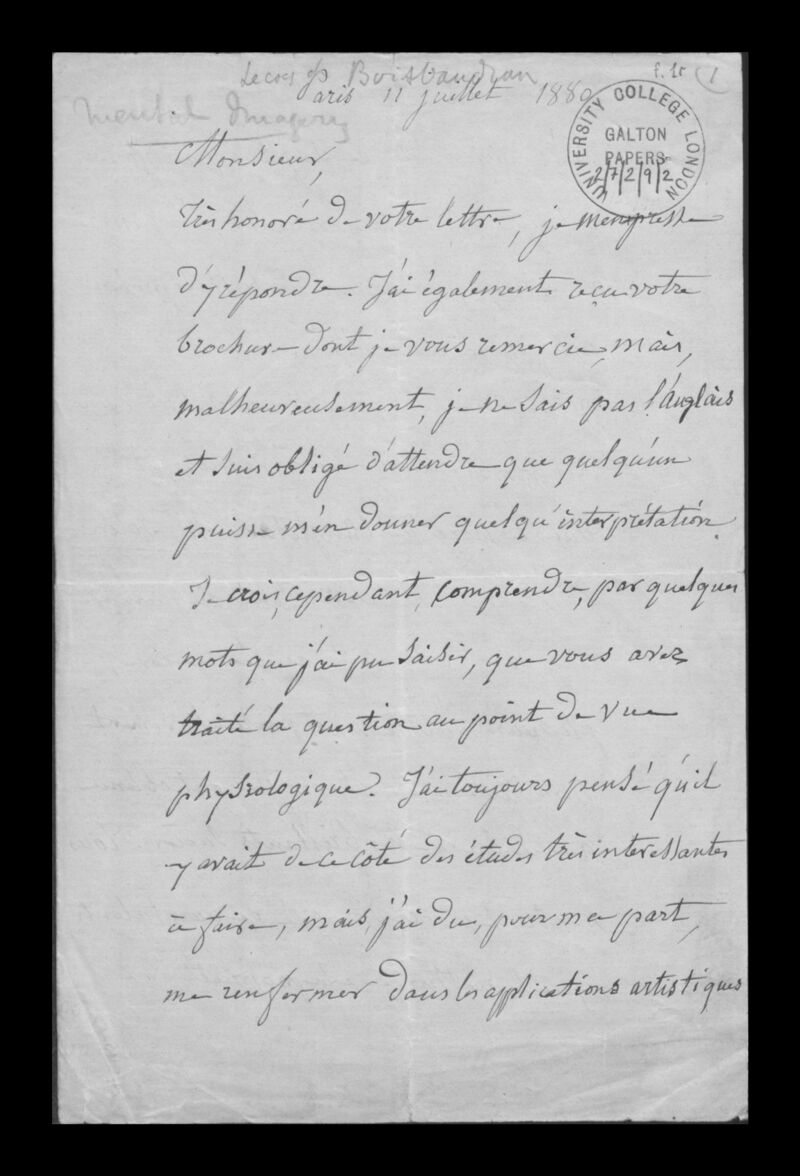 Lecoq de Boisbaudran
f. 1r
1
Paris 11 juillet 1880
Mental Imagery
UNIVERSITY COLLEGE LONDON
GALTON
PAPERS
2/7/2/9/2
Monsieur,
très honoré de votre lettre, je m'empresse
d'y répondre. J'ai également reçu votre
brochure dont je vous remercie, mais,
malheureusement, je ne sais pas l'anglais
et suis obligé d'attendre que quelqu'un
puisse m'en donner quelqu'interprétation.
Je crois, cependant, comprendre, par quelques
mots que j'ai pu saisir, que vous avez
traité la question au point de vue
physiologique. J'ai toujours pensé qu'il
y avait de ce côté des études très interessantes
à faire, mais, j'ai du, pour ma part,
me renfermer dans les applications artistiques